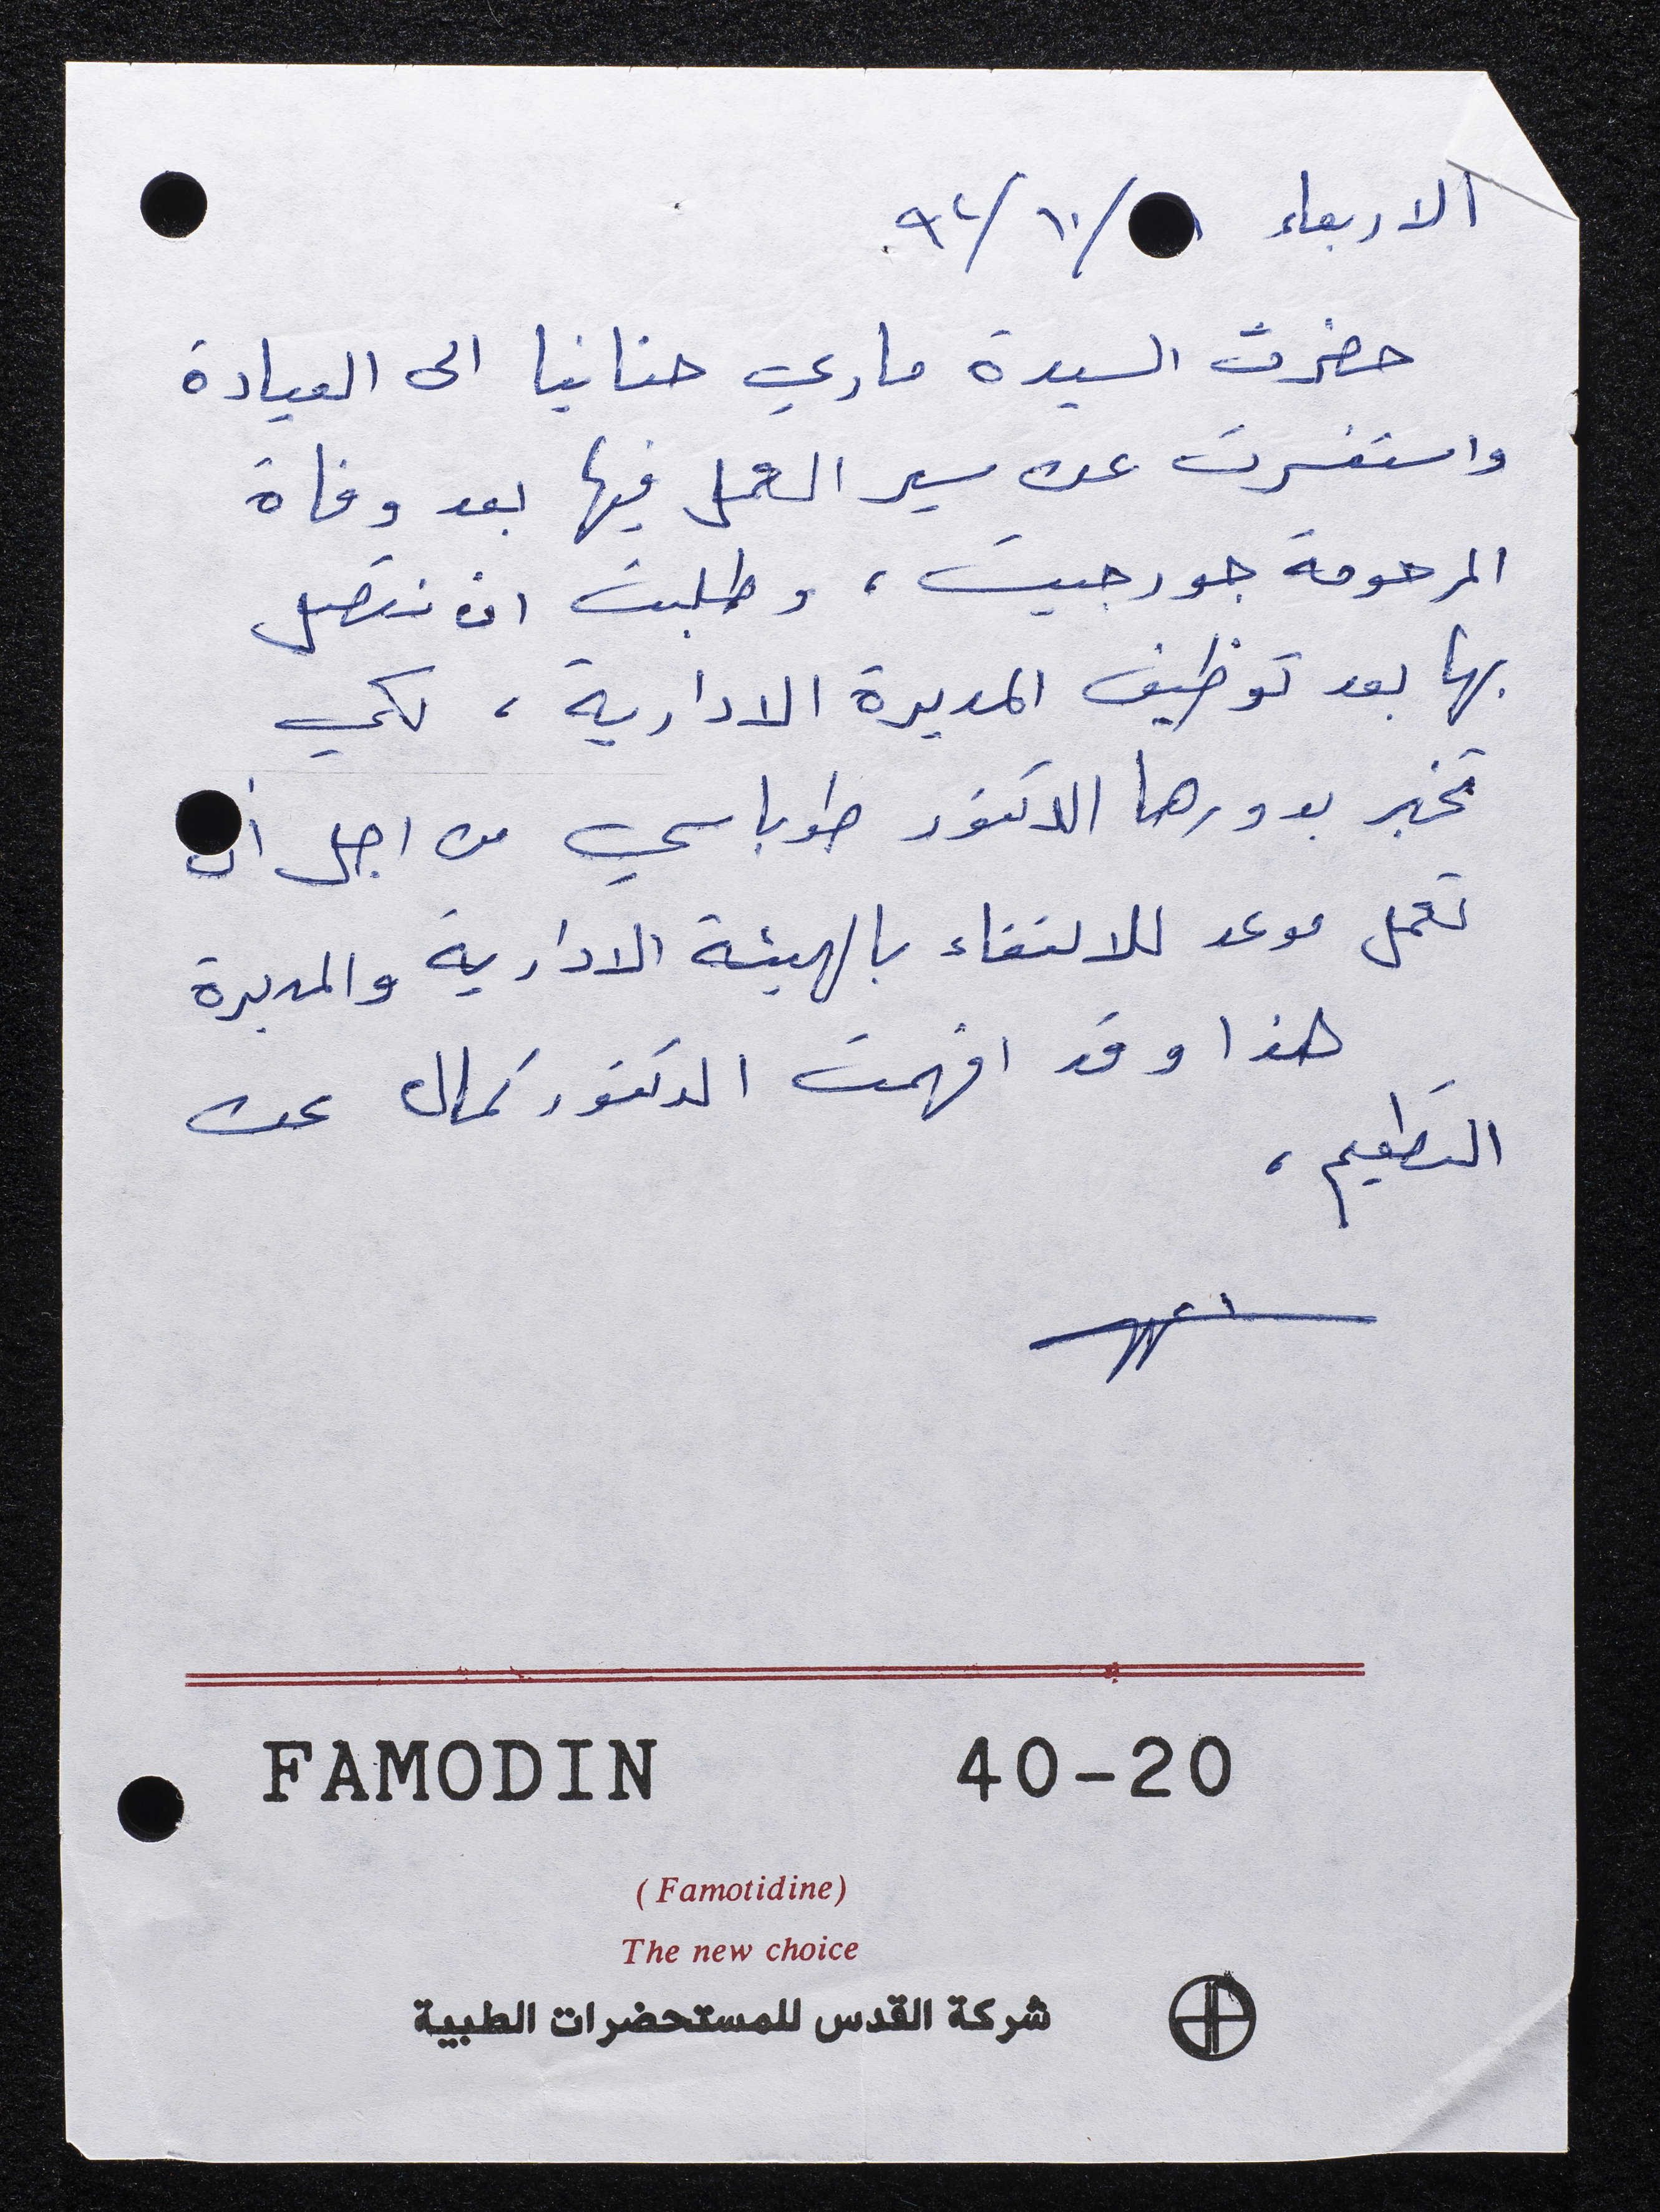 الاربعاء /١٠/٩٢
حضرت السيدة ماري حنانيا الى العيادة
واستفسرت عن سير العمل فيها بعد وفاة
المرحومة جورجيت ، وطلبت ان نتصل
بها بعد توظيف المديرة الادارية ، لكي
تخبر بدورها الدكتور طوباسي من اجل أن
تعمل موعد للالتقاء بالهيئة الادارية والمديرة
هذا وقد افهمت الدكتور كمال عن
التطعيم ،
FAMODIN 40-20
(Famotidine)
The new choice
شركة القدس للمستحضرات الطبية